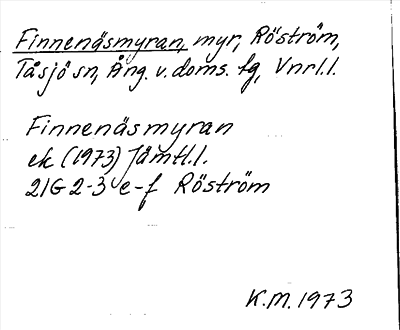 Finnenäsmyran, myr, Röström,
Tåsjö sn, Ång. v. doms. fg, Vnrl.l.
Finnenäsmyran
ek (1973) Jämtl.l.
21G 2-3 e-f Röström
K.M. 1973